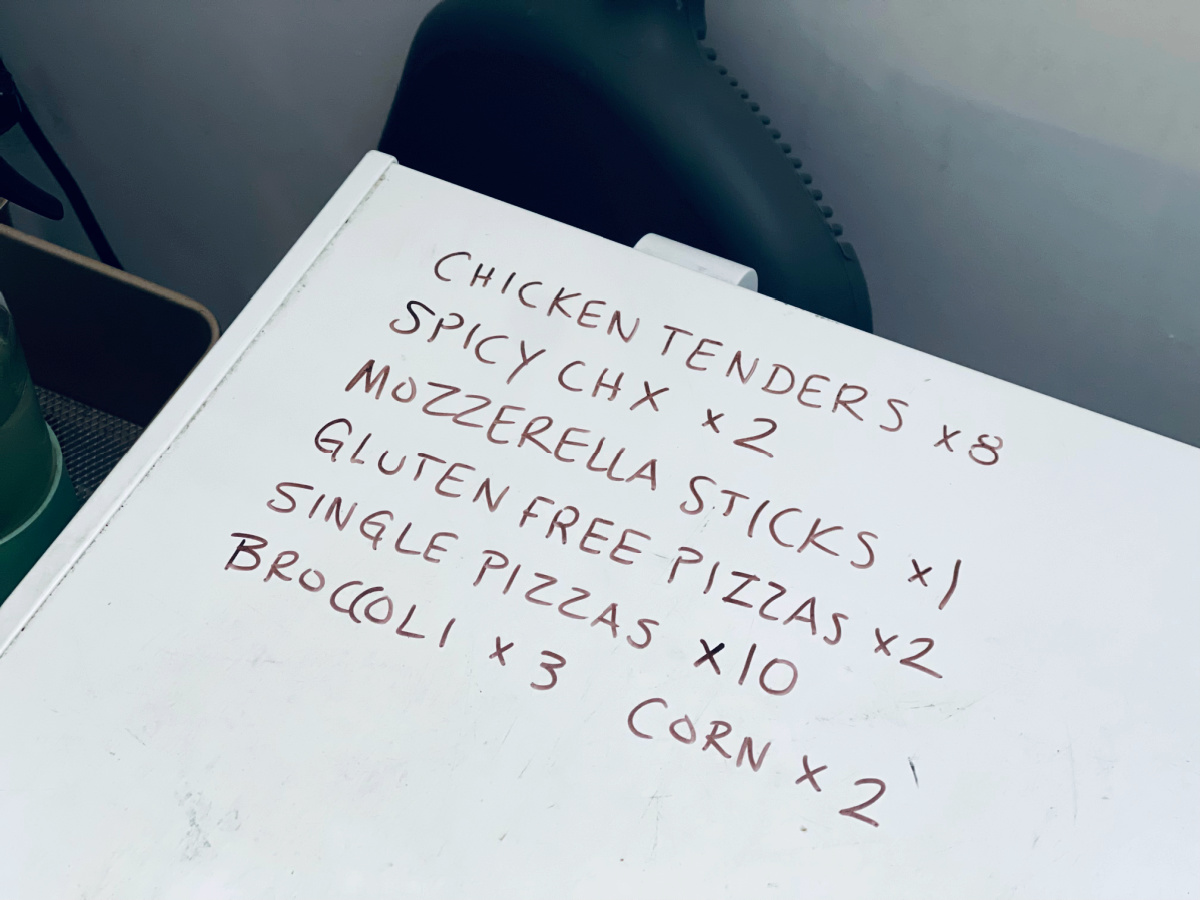 CHICKEN TENDERS x8
SPICY CHX x2
MOZZERELLA STICKS x1
GLUTEN FREE PIZZAS x2
SINGLE PIZZAS x10
BROCCOLI x3 CORN x2